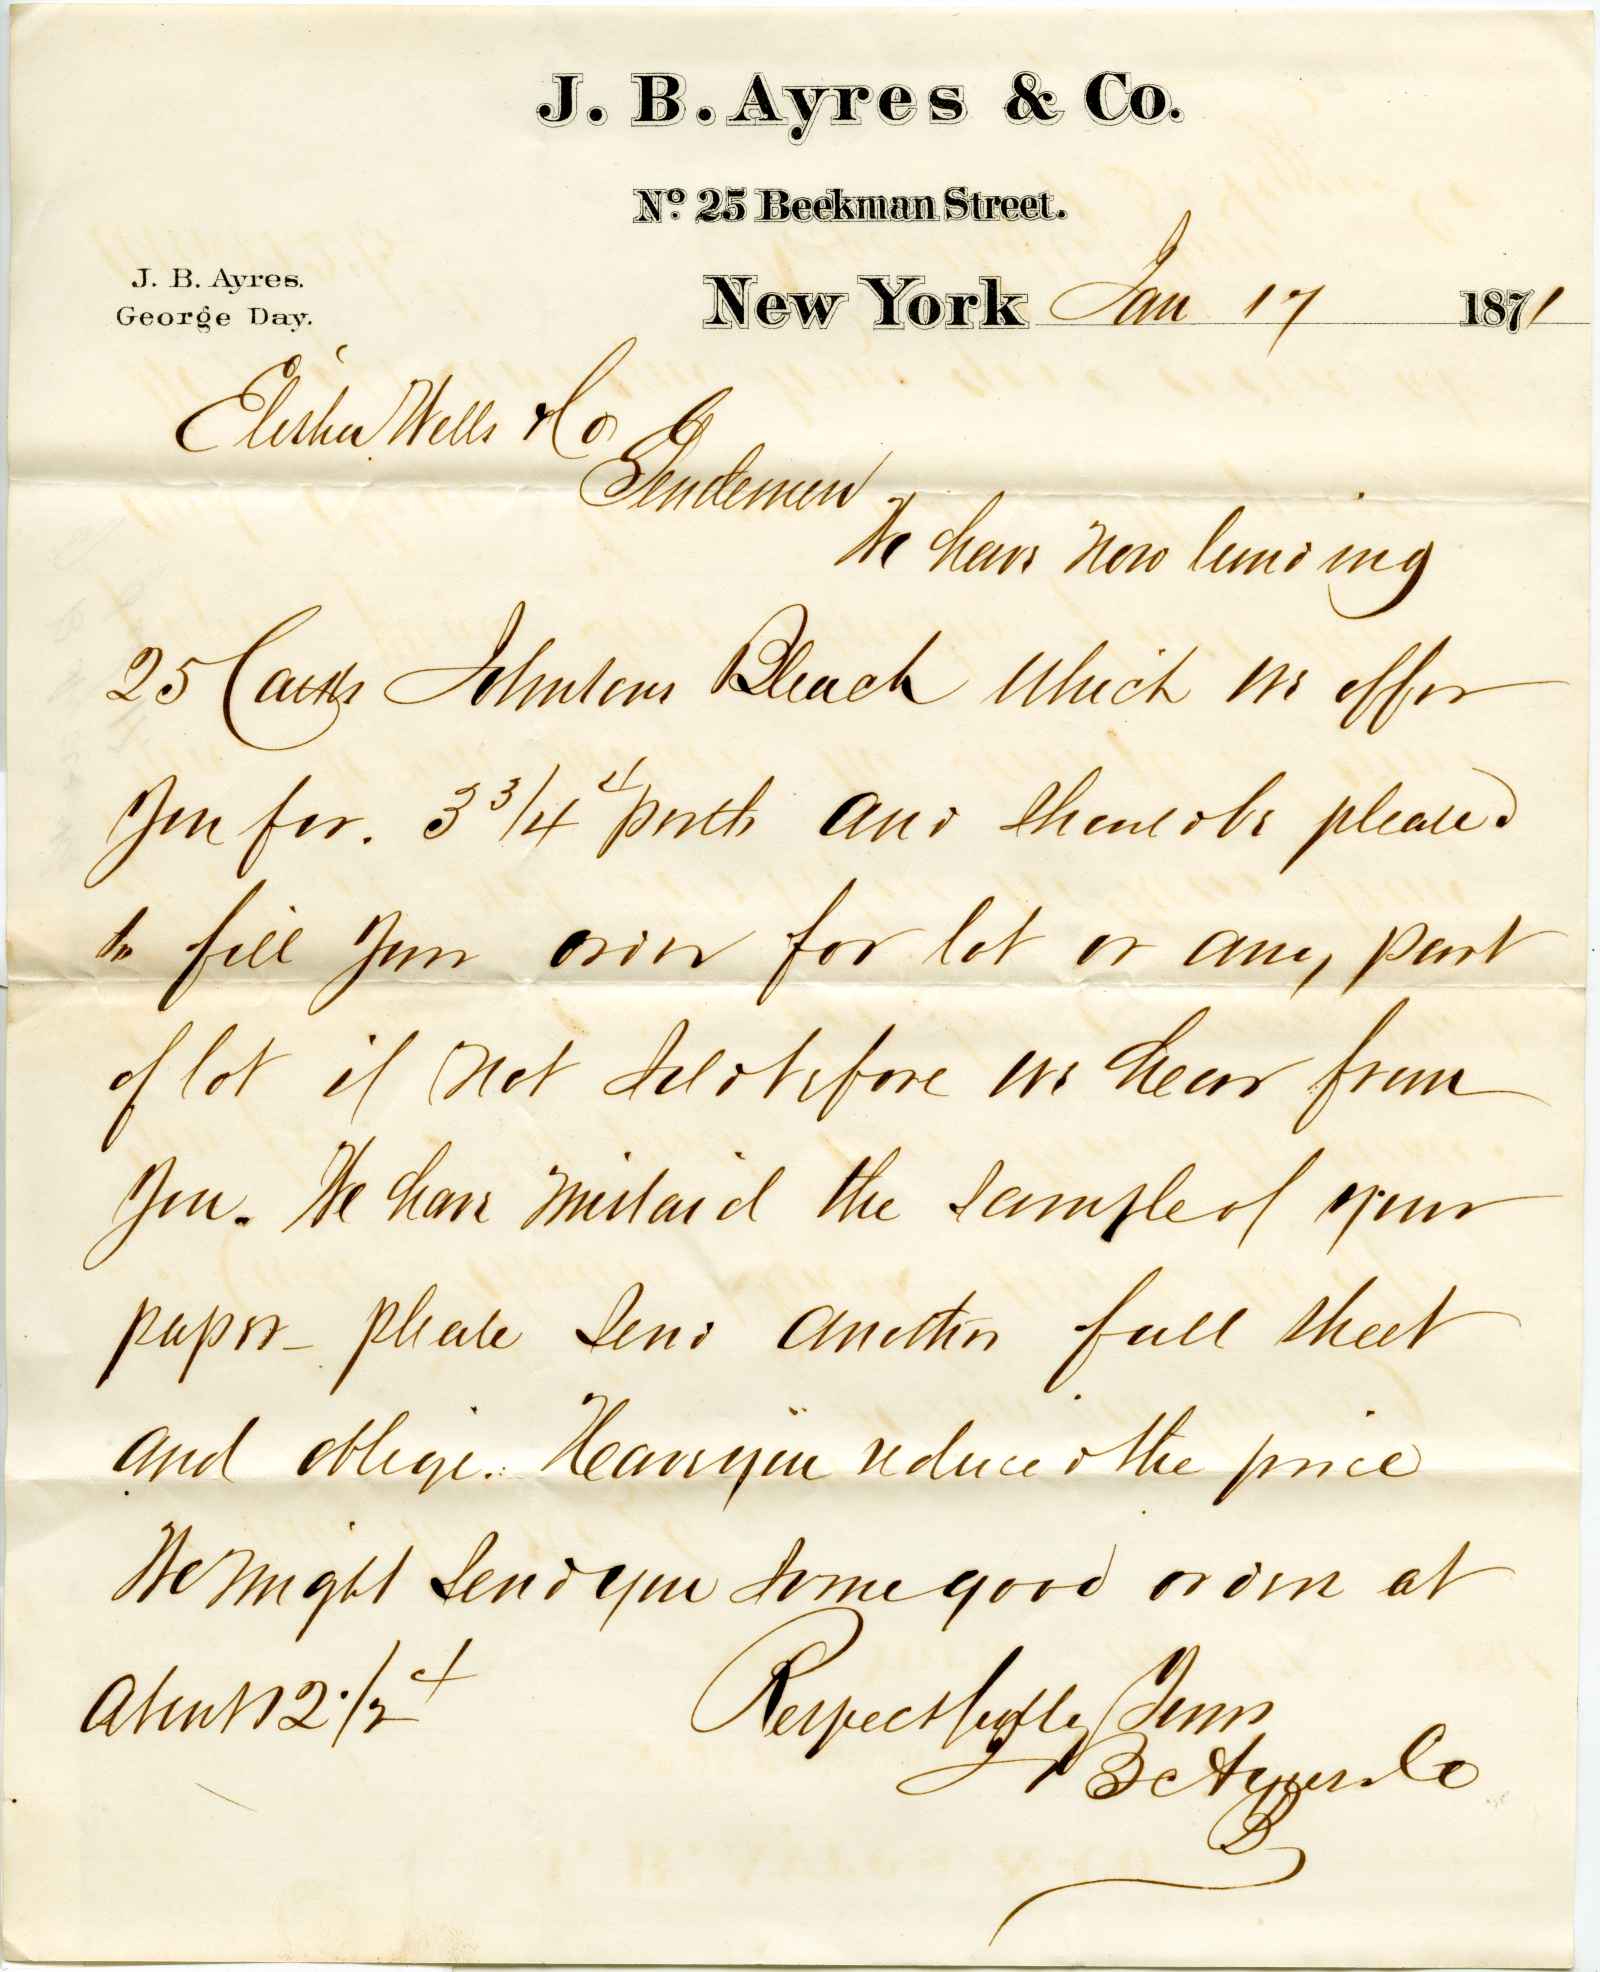 J. B. Ayres & Co.
No. 25 Beekman Street.
J. B. Ayres.
George Day.
New York Jan 17 1871
Elisha Wells & Co
Gentlemen
We have now landing
25 Casks Johnsons Bleach which we offer
you for. 3 3/4 ¢ per lb and should be pleased
to fill your order for lot or any part
of lot if not sold before we hear from
you. We have mislaid the sample of your
paper - please send another full sheet
and oblige. Have you reduced the price
We might send you some good orders at
about 12 1/2 ¢
Respectfully Yours
J B Ayres & Co
B